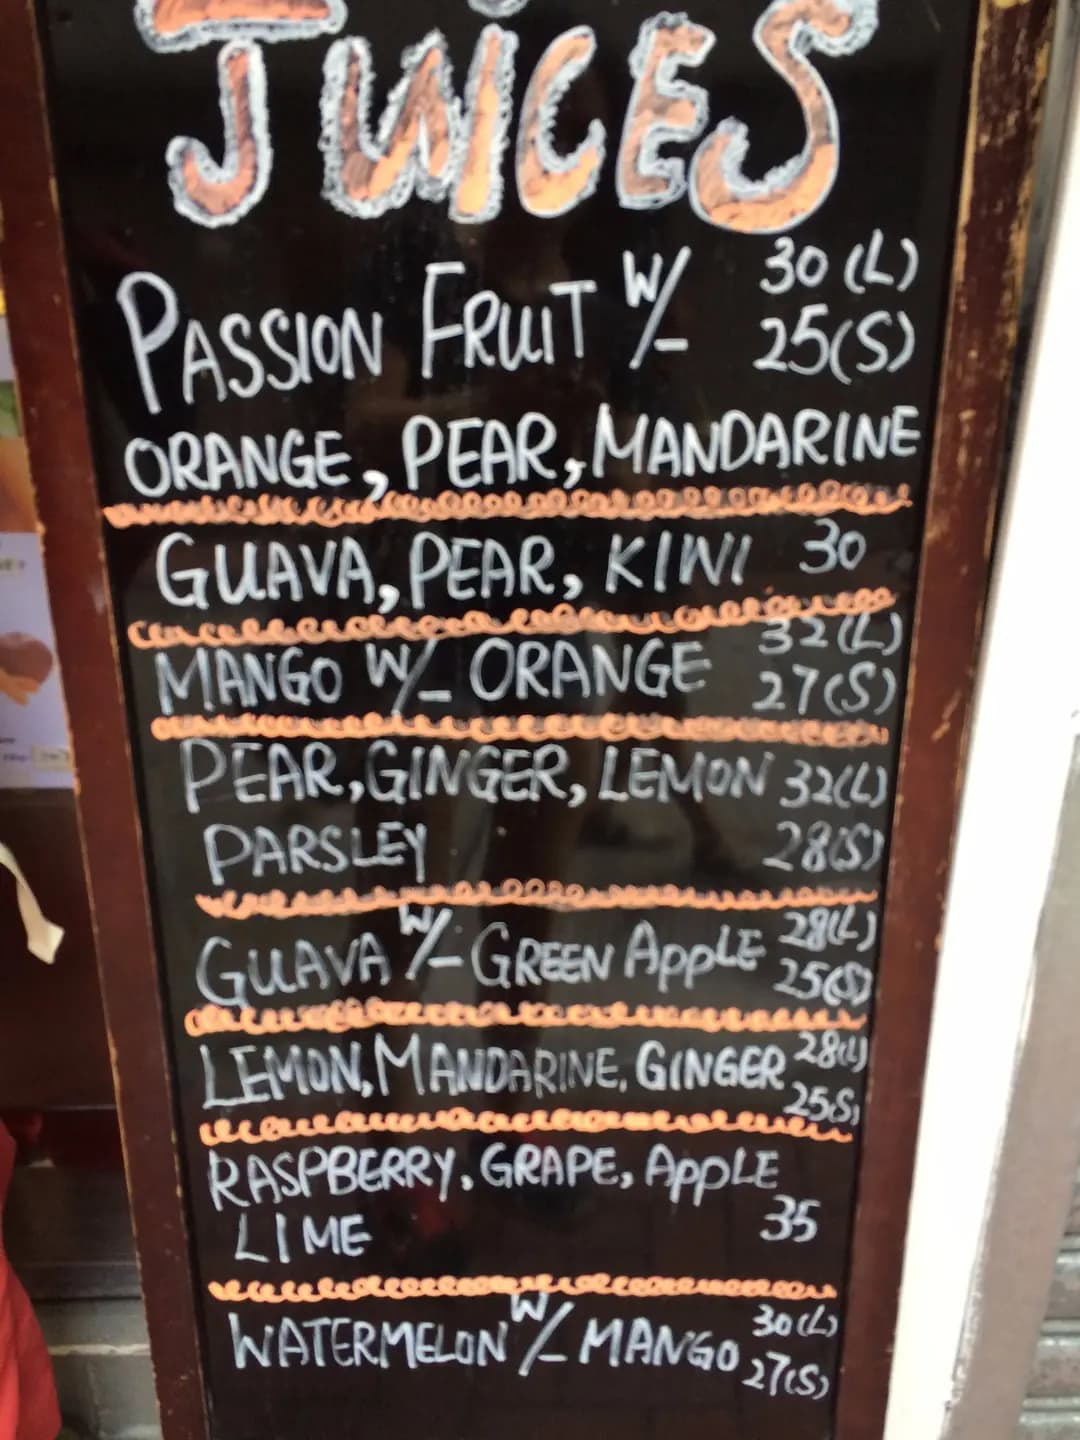 JUICES
PASSION FRUIT W/ 30 (L)
25(S)
ORANGE, PEAR, MANDARINE
GUAVA, PEAR, KIWI 30
32(L)
MANGO W/ ORANGE 27(S)
PEAR, GINGER, LEMON 32(L)
PARSLEY 28(S)
GUAVA W/ GREEN APPLE 28(L)
25(S)
LEMON, MANDARINE, GINGER 28(L)
25(S)
RASPBERRY, GRAPE, APPLE
LIME 35
WATERMELON W/ MANGO 30(L)
27(S)